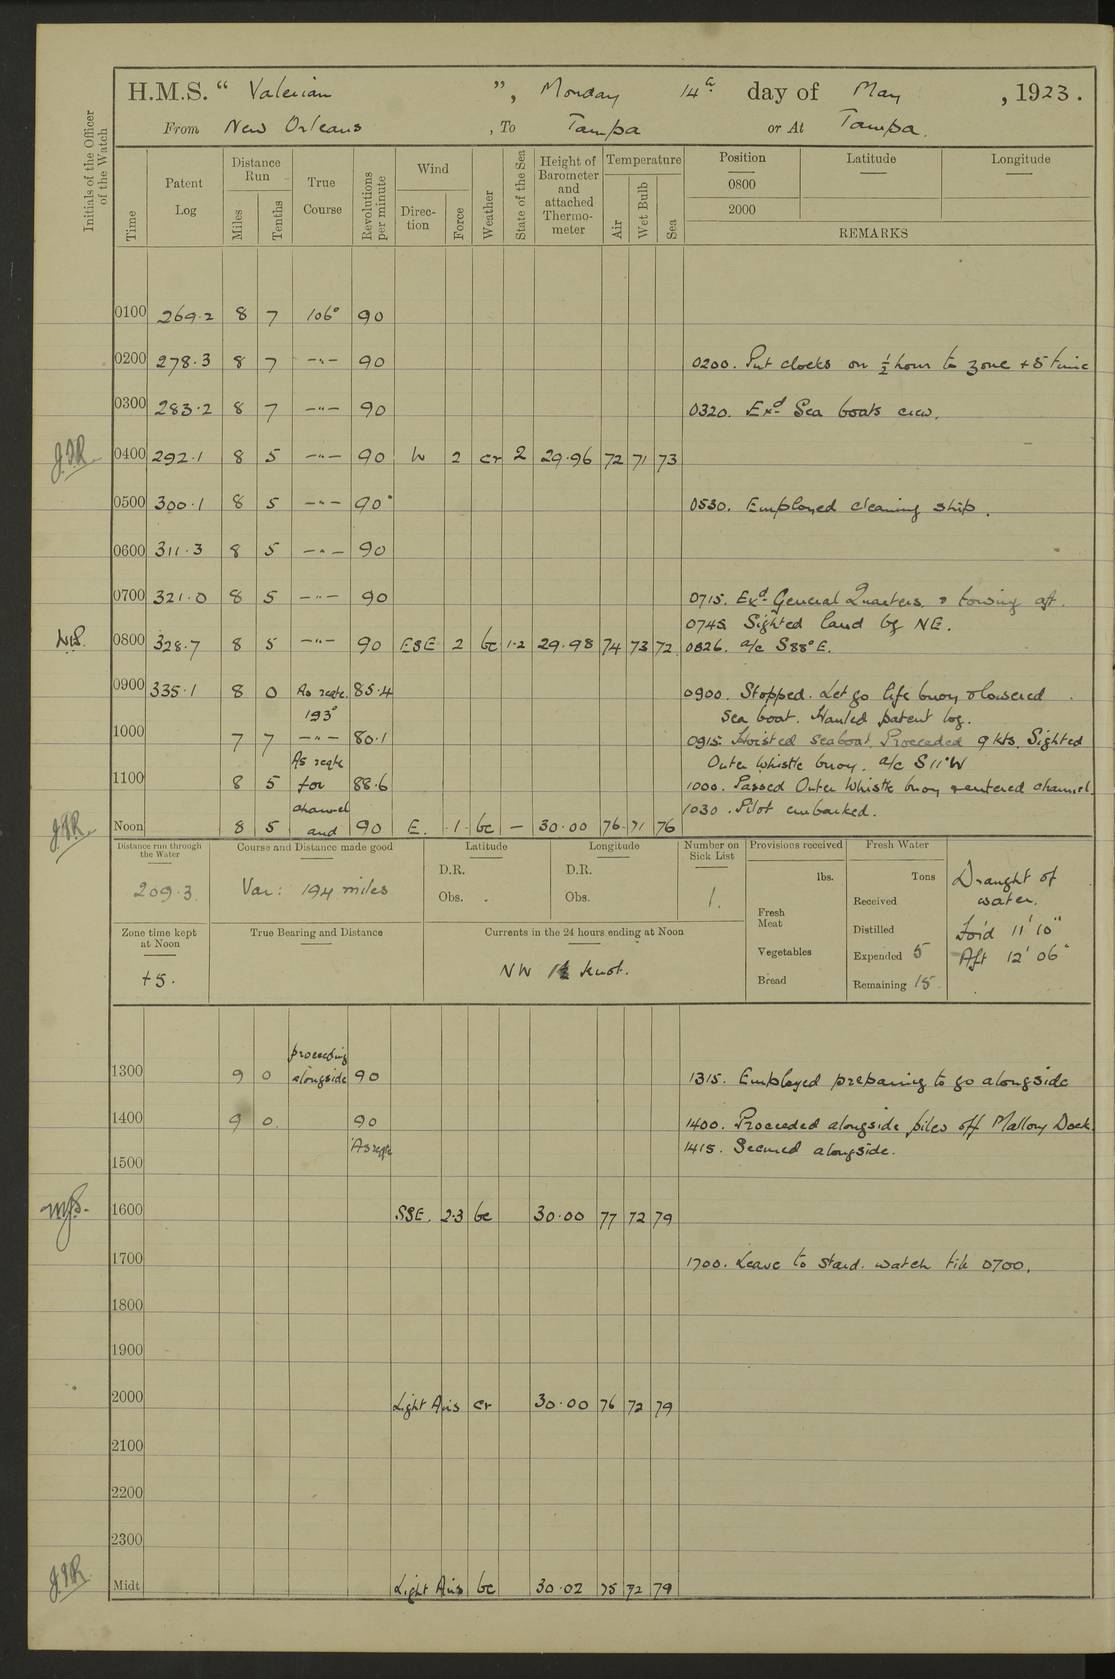 H.M.S. “ Valerian ”, Monday 14th day of May , 1923.
From New Orleans , To Tampa or At Tampa.
Initials of the Officer of the Watch
Time
Patent Log
Distance Run
Miles
Tenths
True Course
Revolutions per minute
Wind
Direc-tion
Force
Weather
State of the Sea
Height of Barometer and attached Thermo-meter
Temperature
Air
Wet Bulb
Sea
Position Latitude Longitude
0800
2000
REMARKS
0100 269.2 8 7 106° 90
0200 278.3 8 7 -"- 90 0200. Put clocks on ½ hour to zone +5 time
0300 283.2 8 7 -"- 90 0320. Exd Sea boats crew.
0400 292.1 8 5 -"- 90 W 2 cr 2 29.96 72 71 73
0500 300.1 8 5 -"- 90 0530. Employed cleaning ship.
0600 311.3 8 5 -"- 90
0700 321.0 8 5 -"- 90 0715. Exd General Quarters & towing aft.
0745 Sighted land bg NE.
0800 328.7 8 5 -"- 90 ESE 2 bc 1.2 29.98 74 73 72 0826. a/c S88°E.
0900 335.1 8 0 As reqte. 85.4 0900. Stopped. Let go life buoy & lowered
193° sea boat. Hauled patent log.
1000 7 7 -"- 80.1 0915. Hoisted seaboat. Proceeded 9 kts. Sighted
As reqte Outer Whistle buoy. a/c S11°W
1100 8 5 for 88.6 1000. Passed Outer Whistle buoy & entered channel.
channel 1030. Pilot embarked.
Noon 8 5 and 90 E. 1 bc — 30.00 76 71 76
Distance run through the Water
209.3.
Course and Distance made good
Var: 194 miles
Latitude
D.R.
Obs.
Longitude
D.R.
Obs.
Number on Sick List
1.
Provisions received
lbs.
Fresh Meat
Vegetables
Bread
Fresh Water
Tons
Received
Distilled
Expended 5
Remaining 15
Draught of
water.
For'd 11' 10"
Aft 12' 06"
Zone time kept at Noon
+5.
True Bearing and Distance
Currents in the 24 hours ending at Noon
NW knot.
proceeding
1300 9 0 alongside 90 1315. Employed preparing to go alongside
1400 9 0 90 1400. Proceeded alongside piles off Mallory Dock.
As reqte 1415. Secured alongside.
1500
1600 SSE. 2.3 bc 30.00 77 72 79
1700 1700. Leave to starbd. watch till 0700.
1800
1900
2000 Light Airs cr 30.00 76 72 79
2100
2200
2300
Midt Light Airs bc 30.02 75 72 79